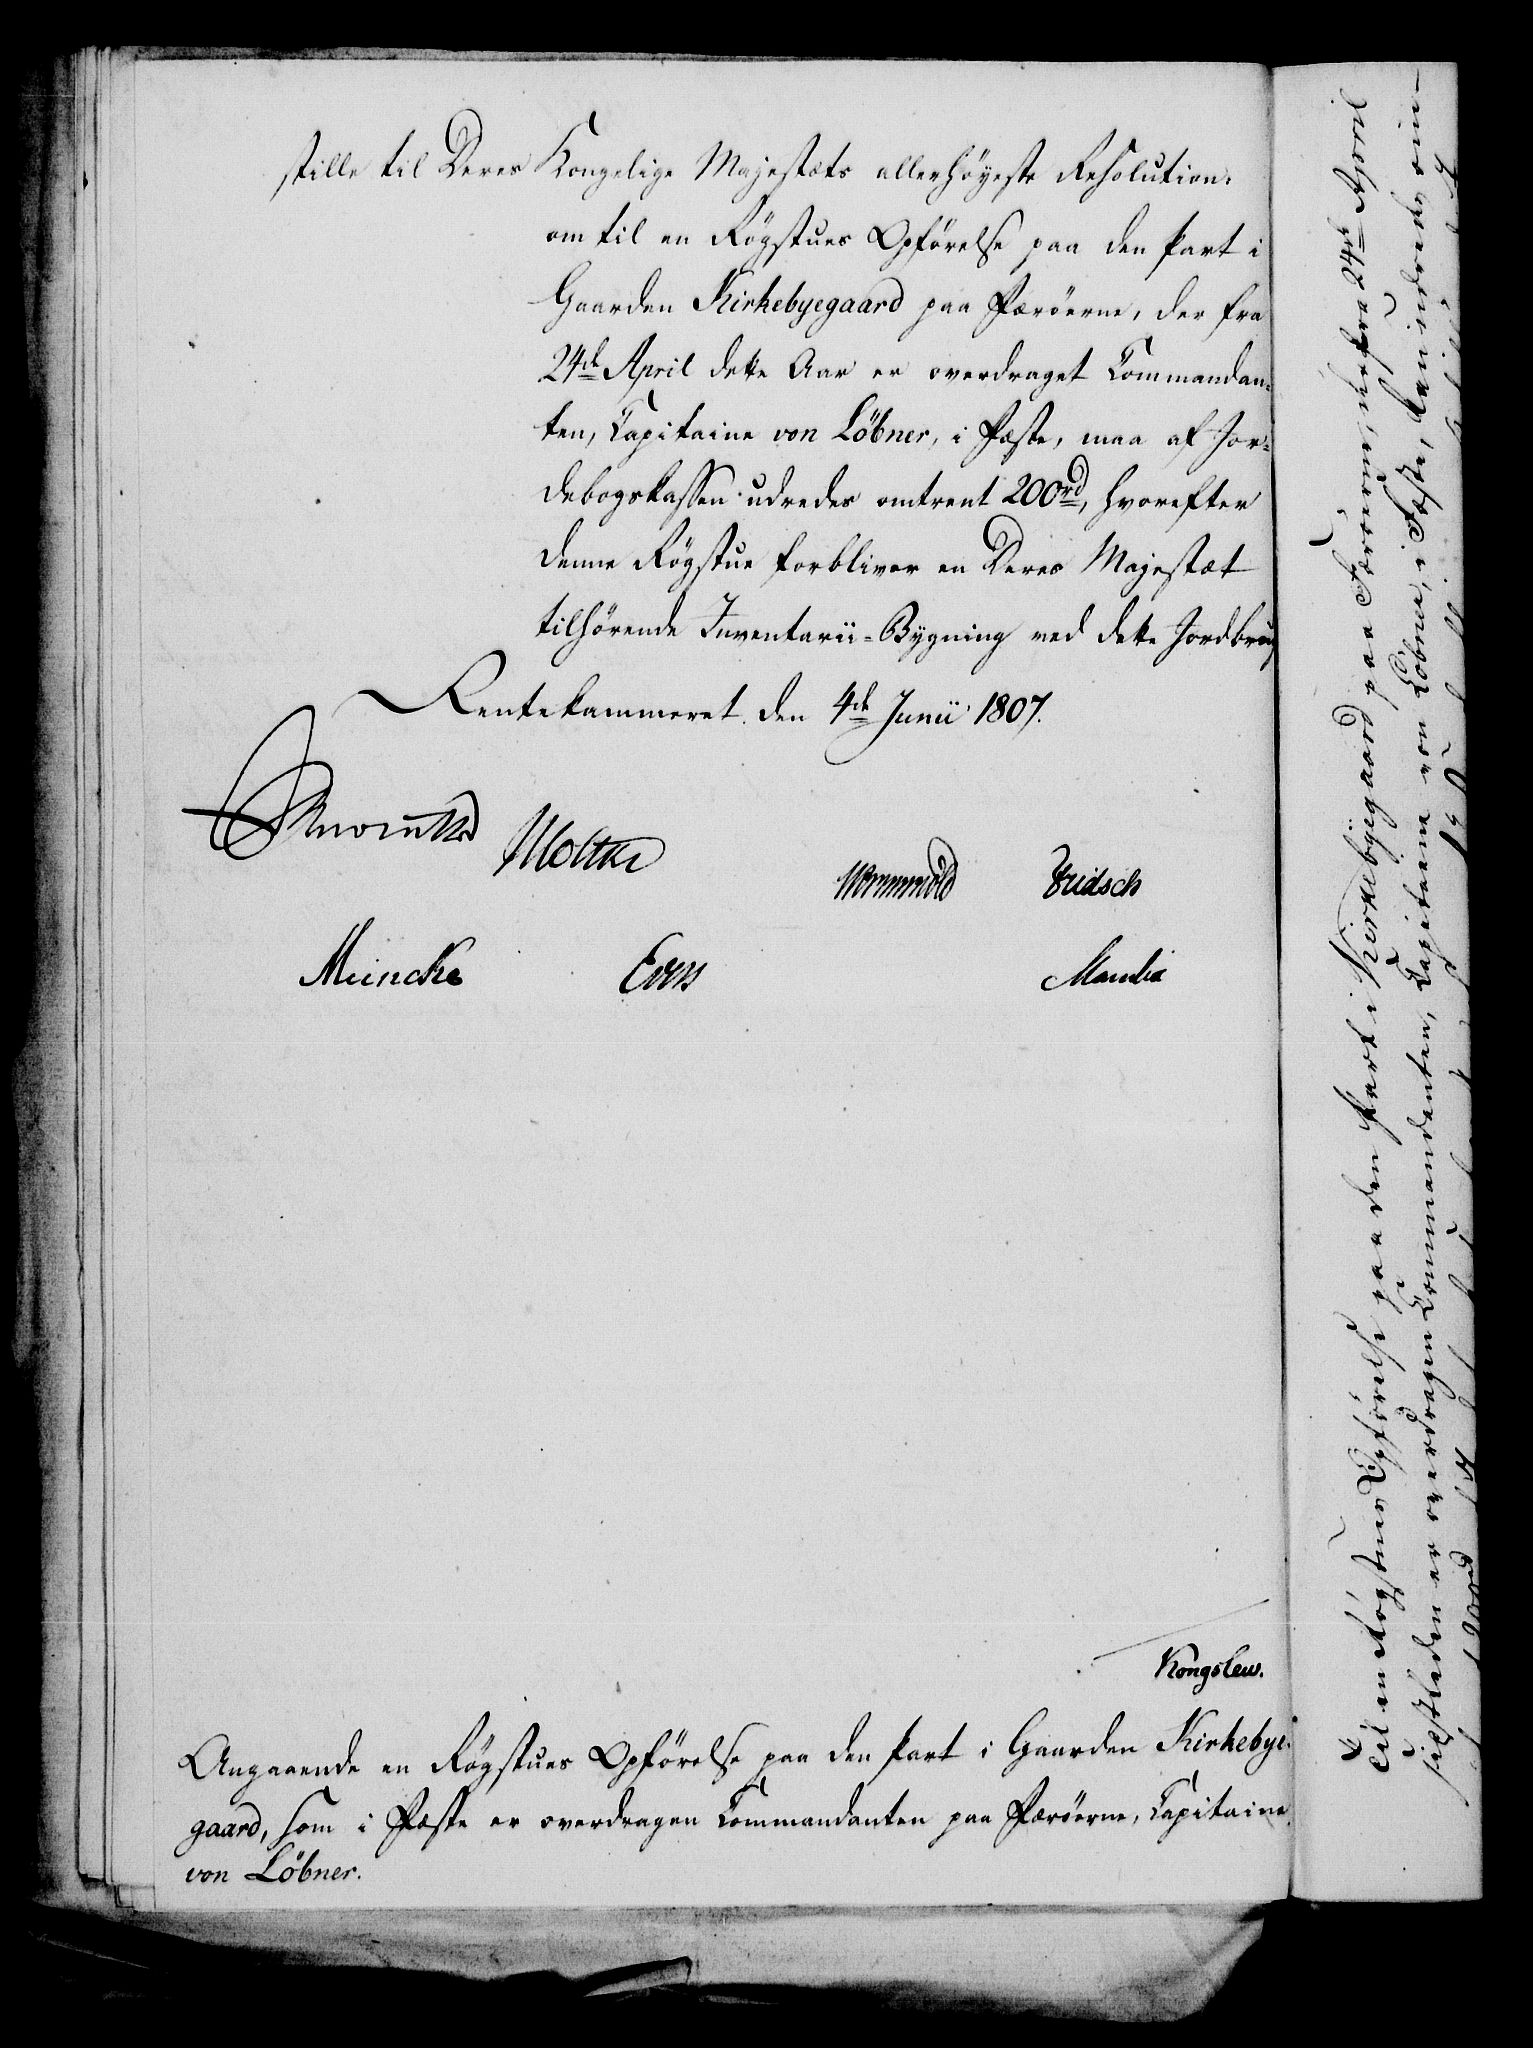 stille til Deres Kongelige Majestæts allerhöyeste Resolution:
om til en Rögstues Opförelse paa den Part i
Gaarden Kirkebyegaard paa Færöerne, der fra
24de April dette Aar er overdraget Commandan-
ten, Capitaine von Löbner, i Fæste, maa af Jor-
debogskassen udredes omtrent 200rd, hvorefter
denne Rögstue forbliver en Deres Majestæt
tilhörende Inventarii-Bygning ved dette Jordbrug
Rentekammeret den 4de Junii 1807.
Moltke
Wormskiold Fridsch
Meincke Evers Manthei
Kongslew.
Angaaende en Rögstues Opförelse paa den Part i Gaarden Kirkebye-
gaard, som i Fæste er overdragen Commandanten paa Færöerne, Capitaine
von Löbner.
Til en Rögstues Opförelse paa den Part i Kirkebÿegaard paa Færöerne, der fra 24de April
sidstleden er overdragen Commandanten, Capitaine von Löbner, i Fæste,